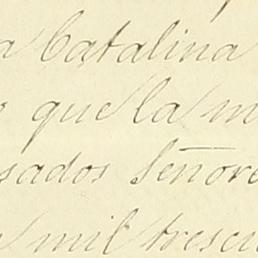 a Catalina
que la m
sados Señore
mil trescie